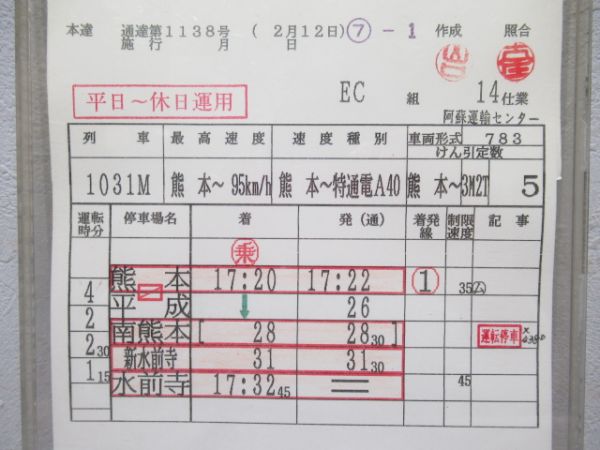 本達 通達第1138号 ( 2月12日) ⑦ - 1 作成 照合
施行 月 日
平日～休日運用
EC 組 14仕業
阿蘇運輸センター
列車 最高速度 速度種別 車両形式 783
けん引定数
1031M 熊本～ 95km/h 熊本～特通電A40 熊本～3M2T 5
運転時分 停車場名 着 発(通) 着発線 制限速度 記事
乗
熊本 17:20 17:22 1 35
4
平成 ↓ 26
2
南熊本 [ 28 28 30 ] 運転停車
2 30
新水前寺 31 31 30
1 15
水前寺 17:32 45 = 45